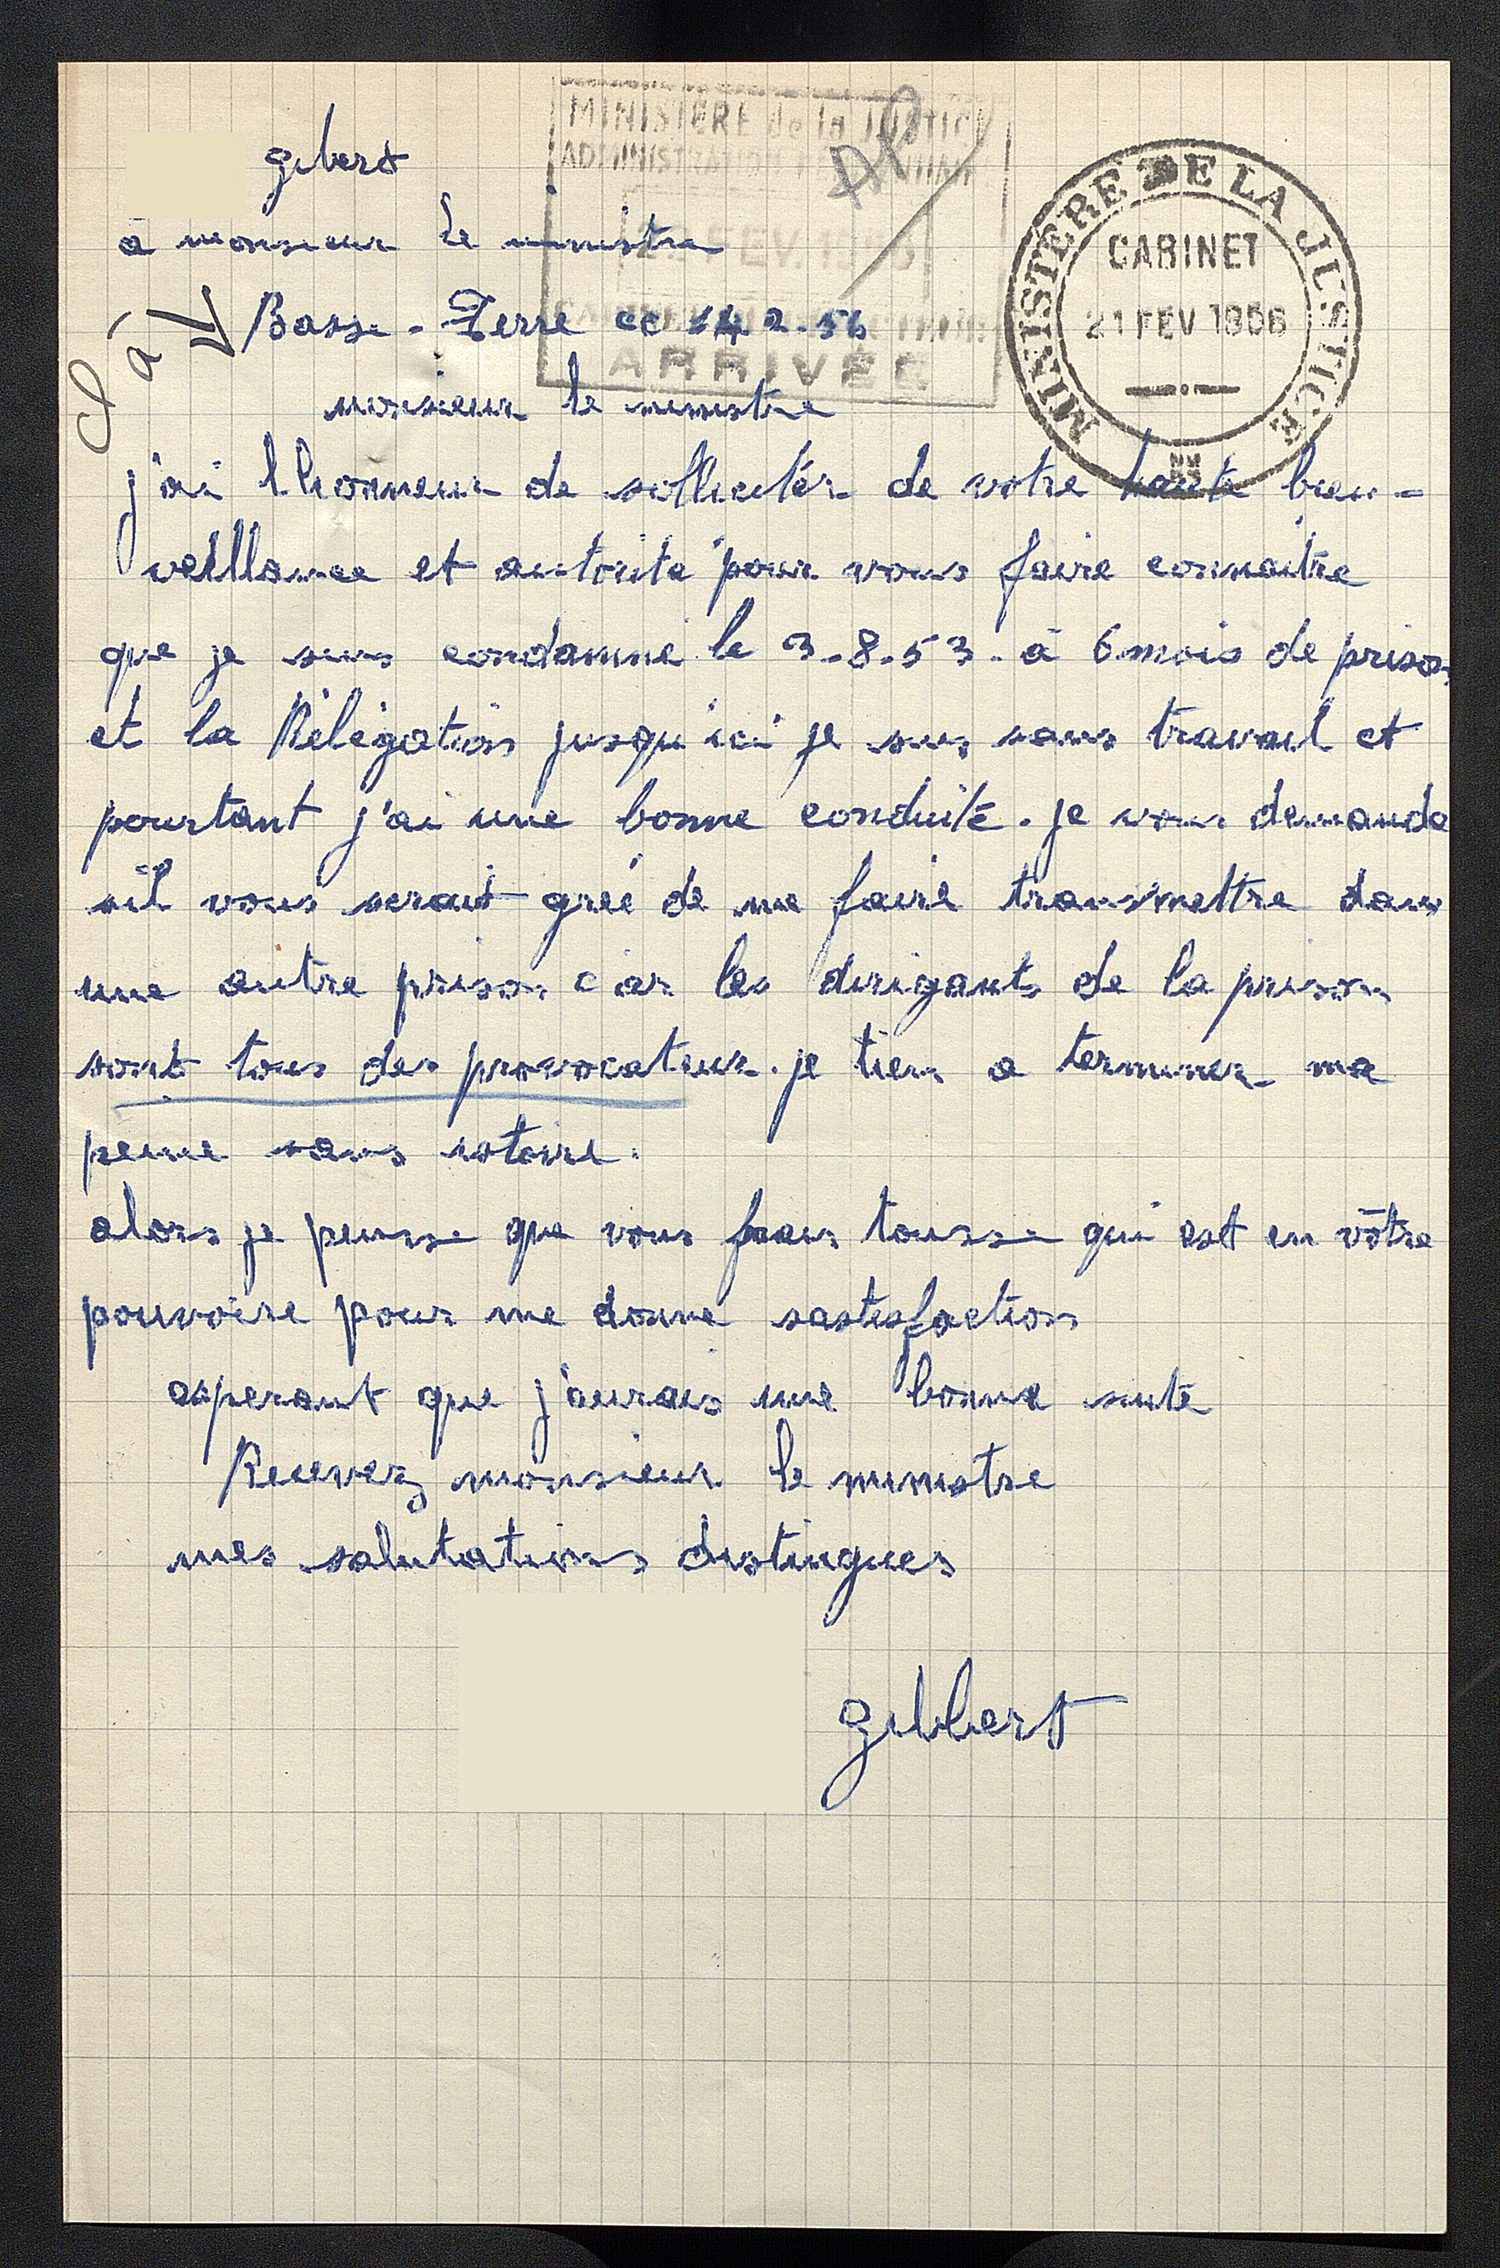 gilbert
MINISTÈRE de la JUSTICE
ADMINISTRATION PÉNITENTIAIRE
AP
FEV. 1956
ARRIVÉE
MINISTÈRE DE LA JUSTICE
CABINET
21 FEV 1956
à monsieur le ministre
Basse-Terre ce 14 2.56
monsieur le ministre
j'ai l'honneur de sollicitér de votre haute bien-
veillance et autorite pour vous faire connaitre
que je suis condamné le 3.8.53. à 6 mois de prison
et la Rélégation jusqu'ici je suis sans travail et
pourtant j'ai une bonne conduité. je vous demande
sil vous serait gréé de me faire transmettre dans
une autre prison car les dirigants de la prison
sont tous des provocateur. je tien a terminer ma
peine sans istoire.
alors je pensse que vous frais tousse qui est en vôtre
pouvoire pour me donné sastisfaction
asperant que j'aurais une bonne suite
Recevez monsieur le ministre
mes salutations distingues
gilbert